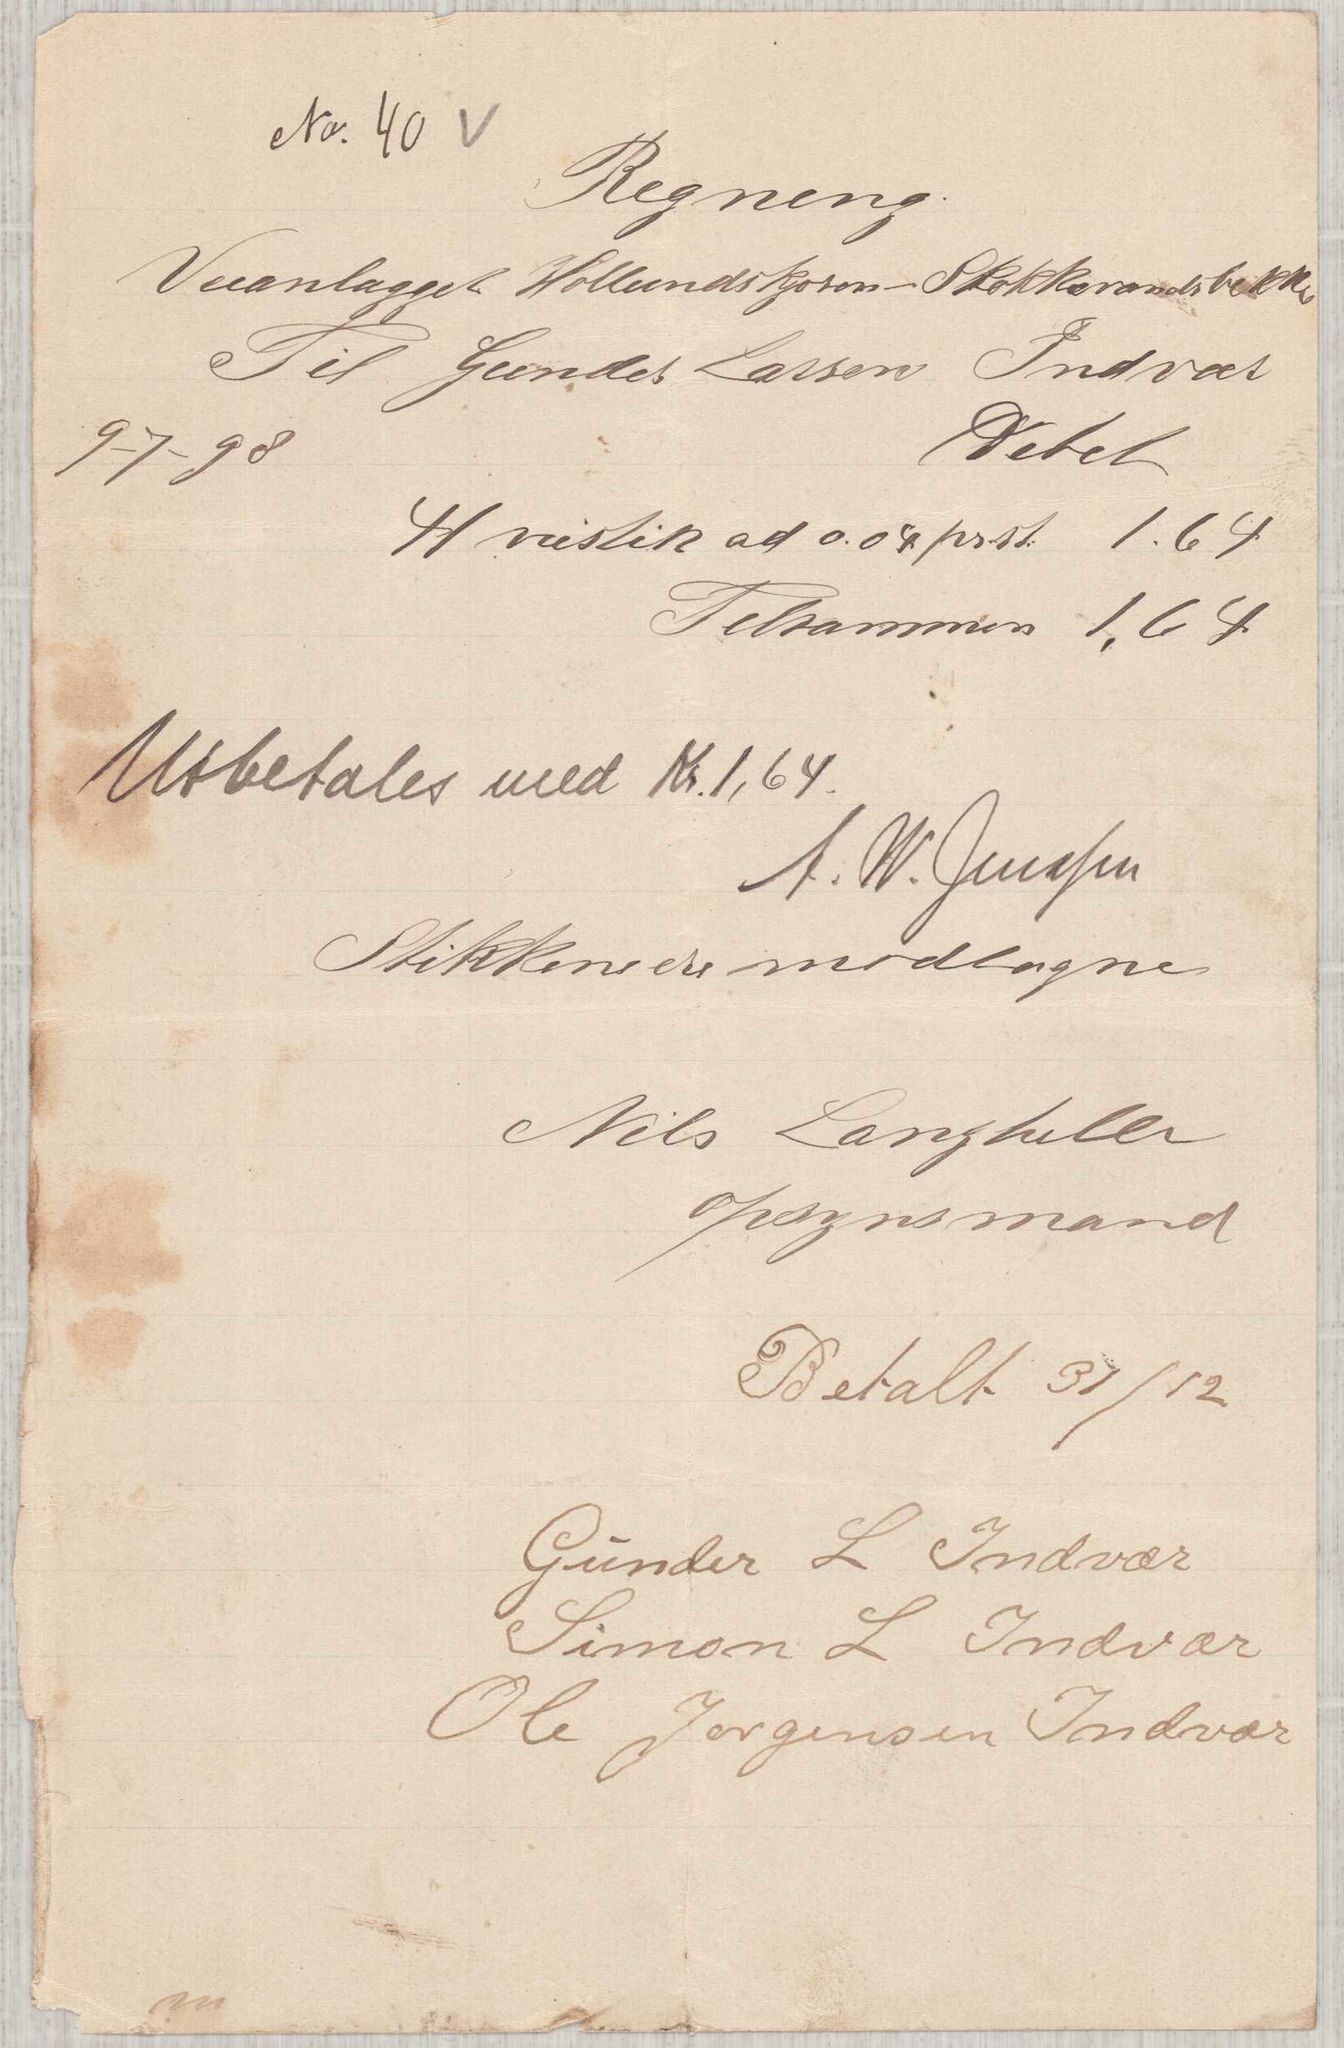 No. 40 V
Regneng.
Veianlægget Hollundskjosen - Stokkevandsbekke
Til Gunder Larsen Indvær
9-7-98 Debet
41 veistik ad 0.04 pr st. 1.64
Telsammen 1,64
Utbetales med Kr. 1,64.
A. W. Jenssen
Stikkene ere modtagne
Nils Langhelle
opsynsmand
Betalt 31/12
Gunder L Indvær
Simon L Indvær
Ole Jørgensen Indvær